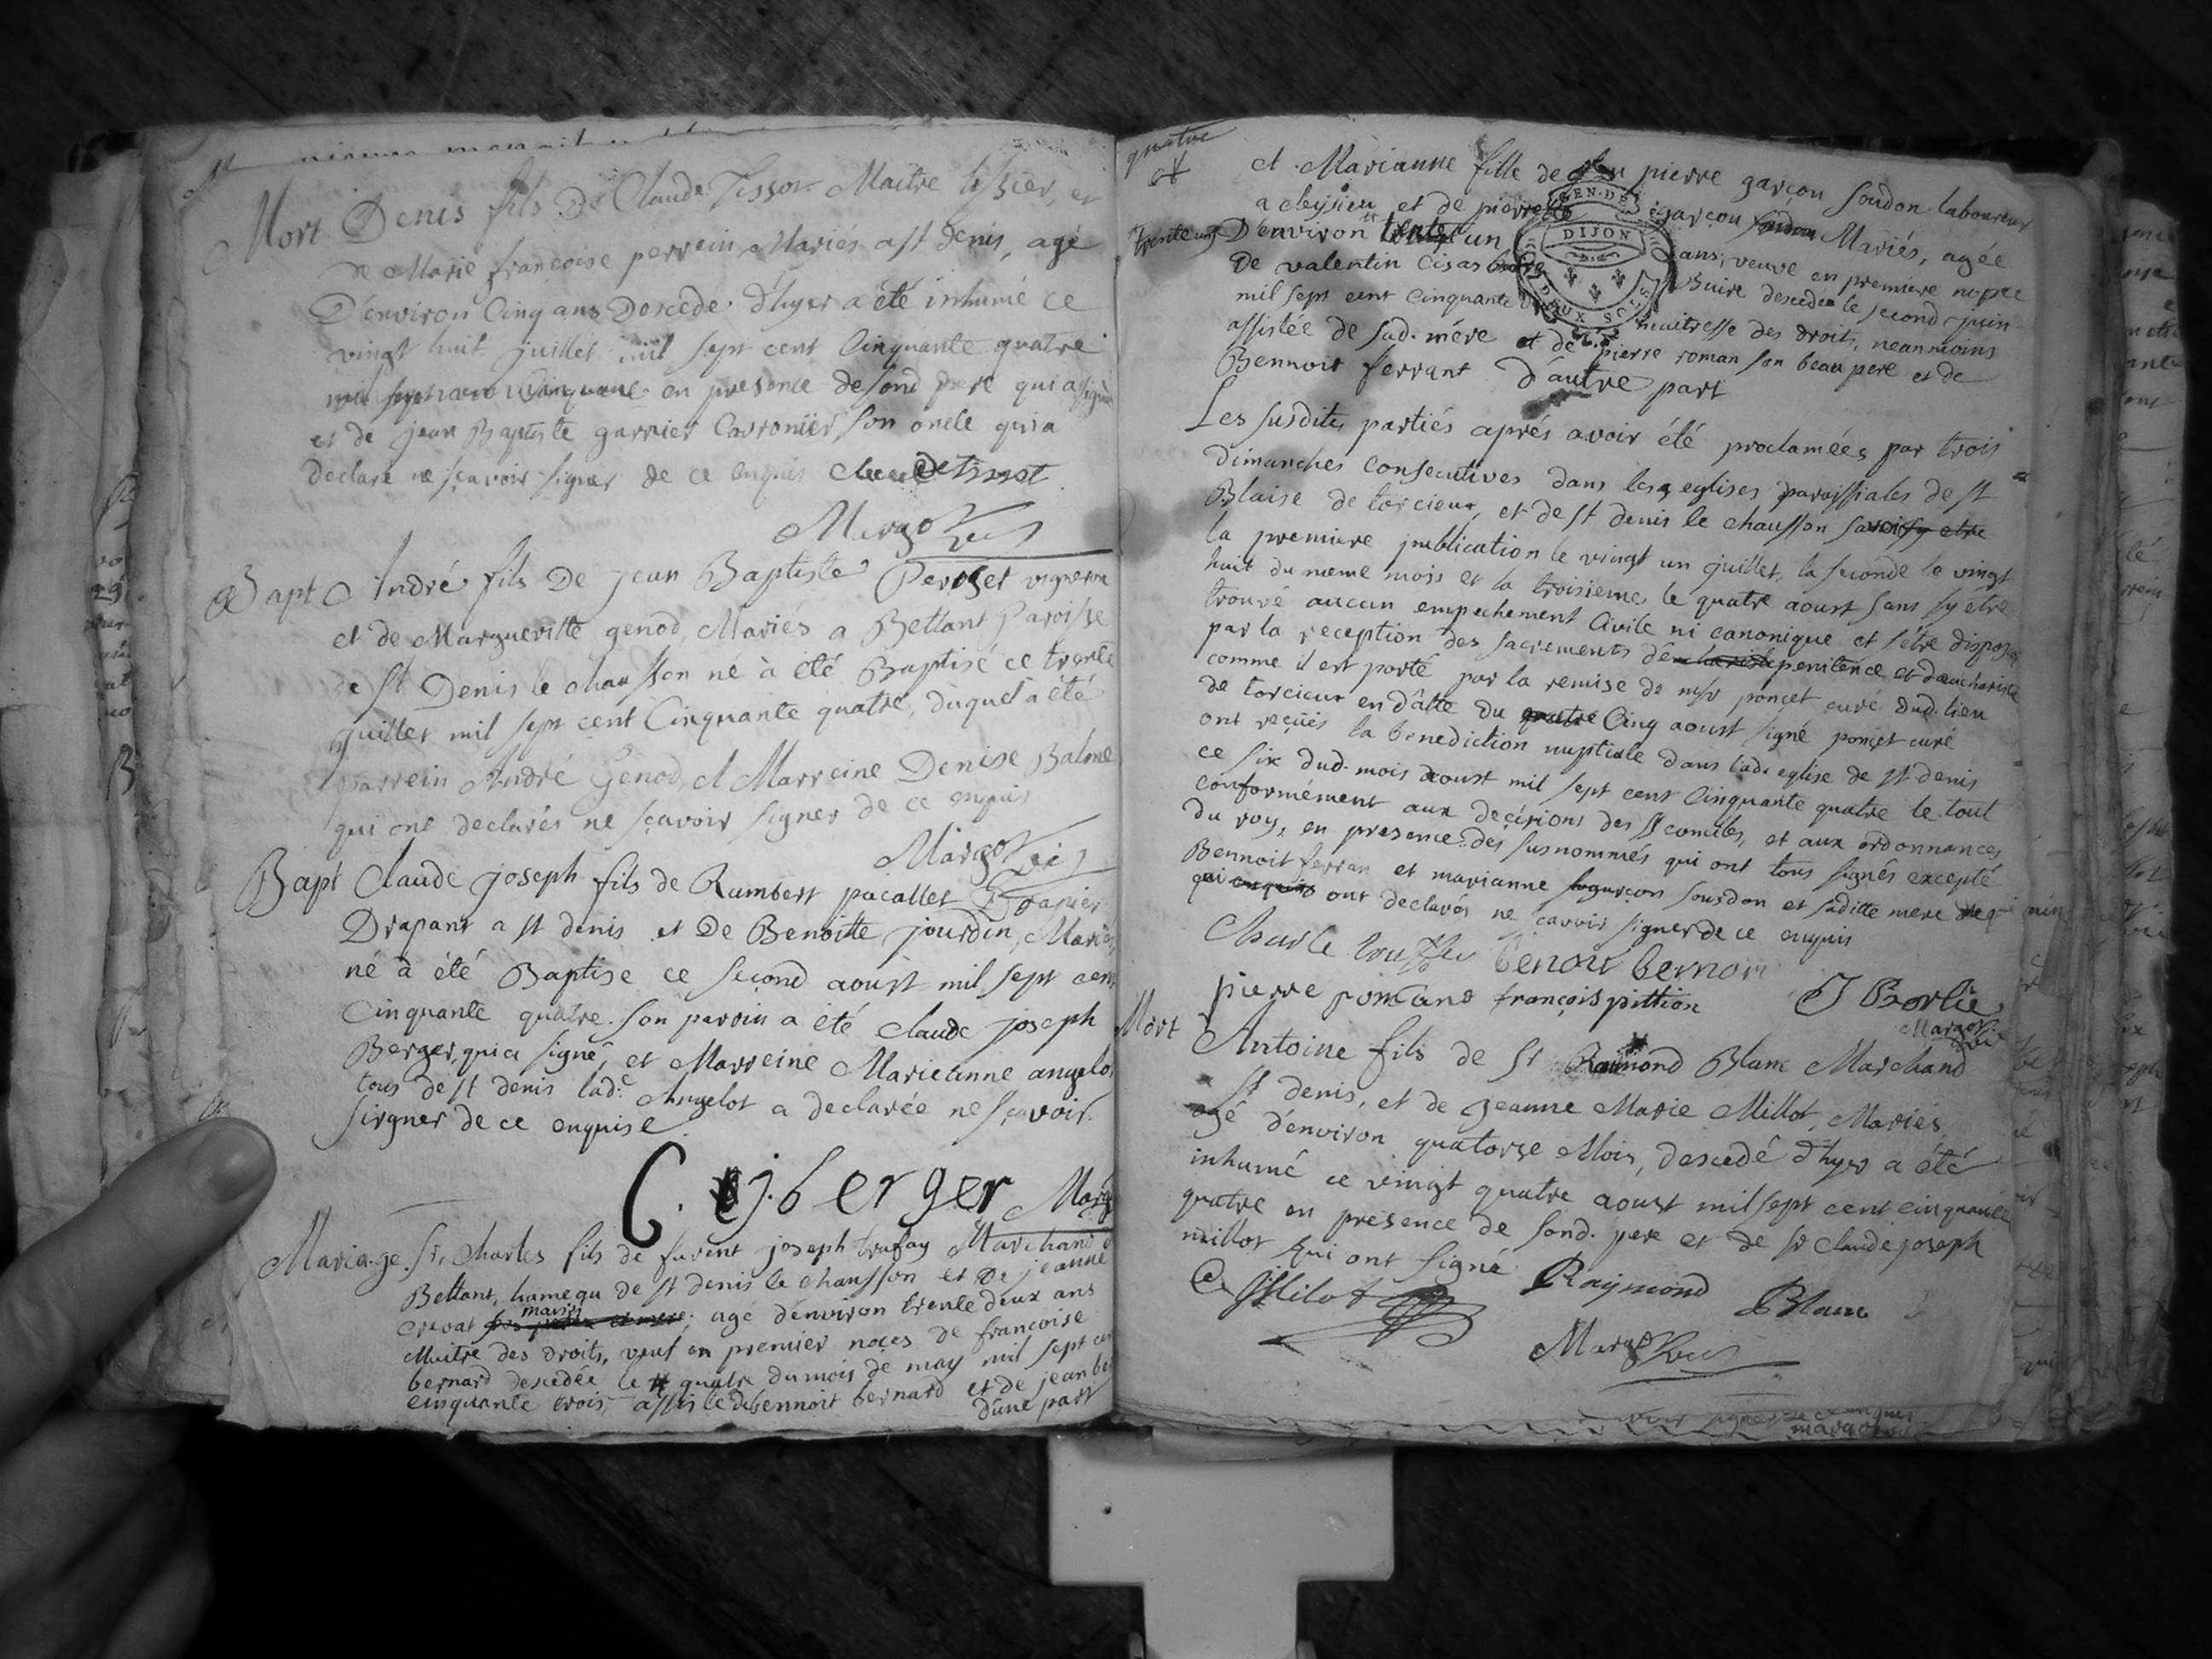 Mort Denis fils De Claude Tissot Maitre tissier, et
de Marie françoise perrein Mariés a st Denis, agé
D'énviron Cinq ans Descédé d'hyer a été inhumé ce
vingt huit juillet mil sept cent Cinquante quatre
en presence de sond pere qui a signé
et de jean Baptiste garnier son oncle qui a
declaré ne sçavoir signer de ce enquis Claude tissot
Margot
Bapt André fils De jean Baptiste Perozet vigneron
et de Margueritte genod, Mariés a Bettant Paroisse
de St Denis le chausson né à été Baptisé ce trente
juillet mil sept cent Cinquante quatre, duquel a été
parrein André Genod, et Marreine Denise Balme
qui ont declarés ne sçavoir signer de ce enquis
Margot
Bapt Claude joseph fils de Rambert pacallet
Drapant a st denis et De Benoitte jourdin, Mariés
né à été Baptise ce second aoust mil sept cent
Cinquante quatre. son parein a été claude joseph
Berger, qui a signé, et Marreine Marieanne angelot
tous de st denis lad.e Angelot a declarée ne sçavoir
sirgner de ce enquise
C. j. berger Marg
Mariage. Sr. Charles fils de furent joseph trufay Marchand a
Bettant, hameau de st denis le chausson et De jeanne
crevat mariés agé d'énviron trente deux ans
Maitre des droits, veuf en premier noces de francoise
bernard descedée le quatre du mois de may mil sept cent
cinquante trois, assisté de bennoit bernard et de jean be
d'une part
quatre
et Marianne fille de pierre garçon soudon laboureur
a cleysieu et de pierrette garçon Mariés, agée
trente un D'énviron trente un ans, veuve en premiere nopce
De valentin Cisas Buire descedée le second juin
mil sept cent Cinquante maitresse des droits, neanmoins
assistée de sad. mére et de pierre roman son beau pere et de
Bennoit ferrant d'autre part
Les susdites partiés aprés avoir été proclamées par trois
dimanches Consecutives dans les eglises paroissiales de st
Blaise de torcieur, et de st denis le chausson
la premiere publication le vingt un juillet, la seconde le vingt
huit du meme mois et la troisieme le quatre aoust sans sy etre
trouvé aucun empechement Civile ni canonique et s'étre disposés
par la reception des sacrements de penitence et d'eucharistie
comme il est porté par la remise de msr ponçet curé dud. lieu
de torcieur en datte du quatre Cinq aoust signé ponçet curé
ont reçüés la benediction nuptiale dans lad. eglise de st denis
ce six dud. mois daoust mil sept cent Cinquante quatre le tout
conformément aux deçisions des Sts conciles, et aux ordonnances
du roy, en presence des susnommés qui ont tous signés excepté
Bennoit ferran et marianne garçon sousdon et saditte mere
qui ont declarés ne çavoir signer de ce enquis
Charle truffey benoit bernon
pierre romans françois pittion J Borlie
Margot
Mort Antoine fils de Sr Raimond Blanc Marchand
St denis, et de Jeanne Marie Millot, Mariés
agé d'énviron quatorze Mois, descedé d'hyer a été
inhumé ce vingt quatre aoust mil sept cent cinquante
quatre en presence de sond. pere et de sr Claude joseph
millot qui ont signé
C. J Milot Raymond Blanc
Margot
voir signer de ce enquis
margot
GEN. DE
DIJON
DEUX SOLS